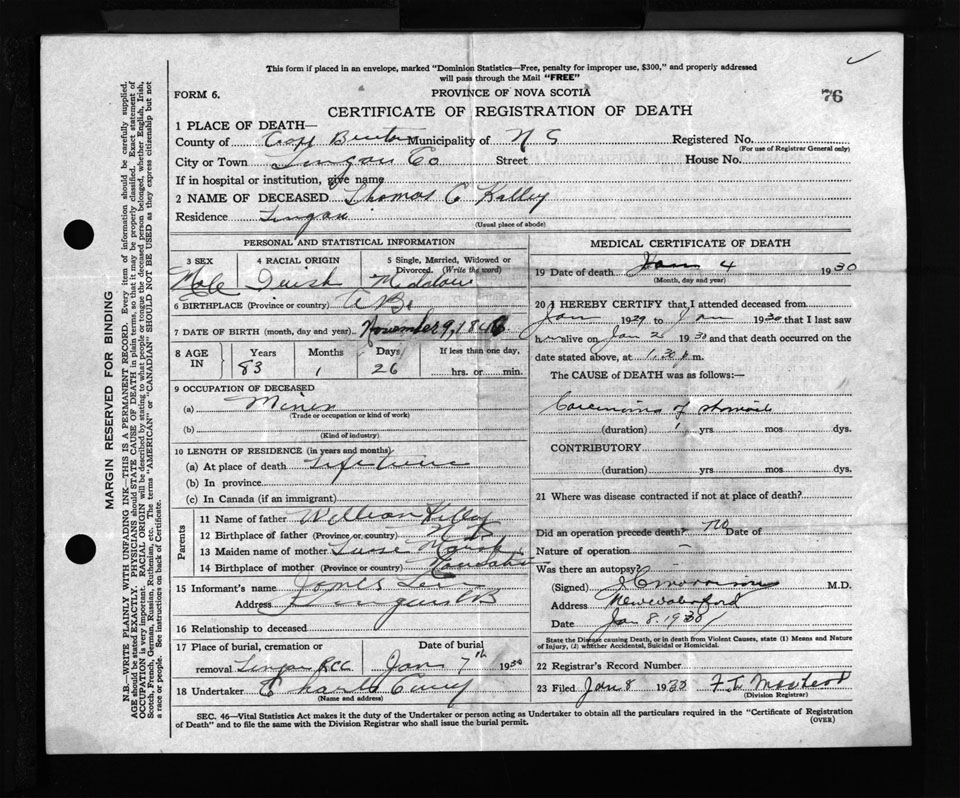 This form if placed in an envelope, marked "Dominion Statistics—Free, penalty for improper use, $300," and properly addressed
will pass through the Mail "FREE"
FORM 6.
PROVINCE OF NOVA SCOTIA
76
CERTIFICATE OF REGISTRATION OF DEATH
1 PLACE OF DEATH—
County of Cape Breton Municipality of N S Registered No.
(For use of Registrar General only)
City or Town Lingan Co Street House No.
If in hospital or institution, give name
2 NAME OF DECEASED Thomas C Kelley
Residence Lingan
(Usual place of abode)
PERSONAL AND STATISTICAL INFORMATION
3 SEX 4 RACIAL ORIGIN 5 Single, Married, Widowed or Divorced. (Write the word)
Male
6 BIRTHPLACE (Province or country)
7 DATE OF BIRTH (month, day and year) November 9, 1846
8 AGE IN Years Months Days If less than one day,
83 1 26 hrs. or min.
9 OCCUPATION OF DECEASED
(a) Miner
(Trade or occupation or kind of work)
(b)
(Kind of industry)
10 LENGTH OF RESIDENCE (in years and months)
(a) At place of death Life time
(b) In province
(c) In Canada (if an immigrant)
Parents
11 Name of father William Kelley
12 Birthplace of father (Province or country)
13 Maiden name of mother
14 Birthplace of mother (Province or country)
15 Informant's name James
Address Lingan CB
16 Relationship to deceased
17 Place of burial, cremation or Date of burial
removal Lingan RCC Jan 7th 1930
18 Undertaker Charles Curry
(Name and address)
MEDICAL CERTIFICATE OF DEATH
19 Date of death Jan 4 1930
(Month, day and year)
20 I HEREBY CERTIFY that I attended deceased from
Jan 1929 to Jan 1930 that I last saw
him alive on Jan 2 1930 and that death occurred on the
date stated above, at 1.30 p.m.
The CAUSE of DEATH was as follows:—
Carcinoma of stomach
(duration) 1 yrs mos dys.
CONTRIBUTORY
(duration) yrs. mos. dys.
21 Where was disease contracted if not at place of death?
Did an operation precede death? No Date of
Nature of operation —
Was there an autopsy?
(Signed) Morrison M.D.
Address New Waterford
Date Jan 8. 1930
State the Disease causing Death, or in death from Violent Causes, state (1) Means and Nature
of Injury, (2) whether Accidental, Suicidal or Homicidal.
22 Registrar's Record Number
23 Filed Jan 8 1930
(Division Registrar)
SEC. 46—Vital Statistics Act makes it the duty of the Undertaker or person acting as Undertaker to obtain all the particulars required in the "Certificate of Registration
of Death" and to file the same with the Division Registrar who shall issue the burial permit.
(OVER)
MARGIN RESERVED FOR BINDING
N.B.—WRITE PLAINLY WITH UNFADING INK—THIS IS A PERMANENT RECORD. Every item of information should be carefully supplied.
AGE should be stated EXACTLY. PHYSICIANS should STATE CAUSE OF DEATH in plain terms, so that it may be properly classified. Exact statement of
OCCUPATION is very important. RACIAL ORIGIN will be described by stating to what people or tongue the deceased person belonged, whether English, Irish,
Scotch, French, German, Russian, Ruthenian, etc. The terms "AMERICAN" or "CANADIAN" SHOULD NOT BE USED as they express citizenship but not
a race or people. See instructions on back of Certificate.